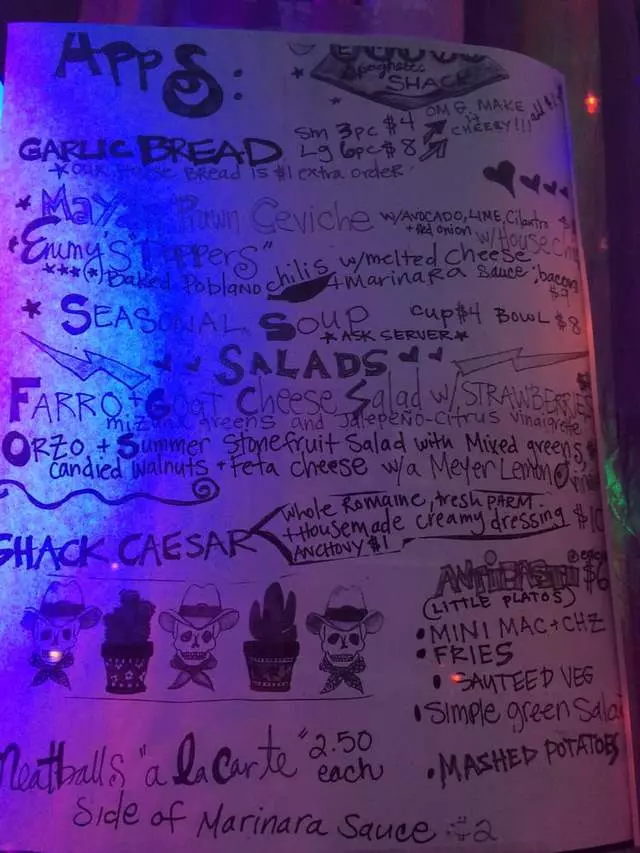 APPS:
Spaghetti
SHACK
GARLIC BREAD Sm 3pc $4
Lg 6pc $8
OMG, MAKE
it
CHEESY!!! add $1
*OUR House BREAD IS $1 extra order
* Prawn Ceviche w/AVOCADO, LIME, Cilantro
+ Red onion w/House
"Emmy'S Poppers" w/melted cheese
***(*) Baked Poblano chilis + Marinara sauce, bacon
$9
* SEASONAL SOUP CUP $4 BOWL $8
*ASK SERVER*
SALADS
FARRO + Goat Cheese Salad w/ STRAWBERRIES
mizuna greens and JALEPEÑO-CITRUS Vinaigrette
ORZO + Summer Stonefruit Salad with Mixed greens,
candied walnuts + Feta cheese w/a Meyer Lemon
SHACK CAESAR
Whole Romaine, fresh PARM
+ Housemade creamy dressing $10
ANCHOVY $1
ANTIPASTI $6
(LITTLE PLATOS)
• MINI MAC + CHZ
• FRIES
• SAUTEED VEG
• Simple green Salad
• MASHED POTATOES
Meatballs "a la Carte" 2.50
each
Side of Marinara Sauce $2